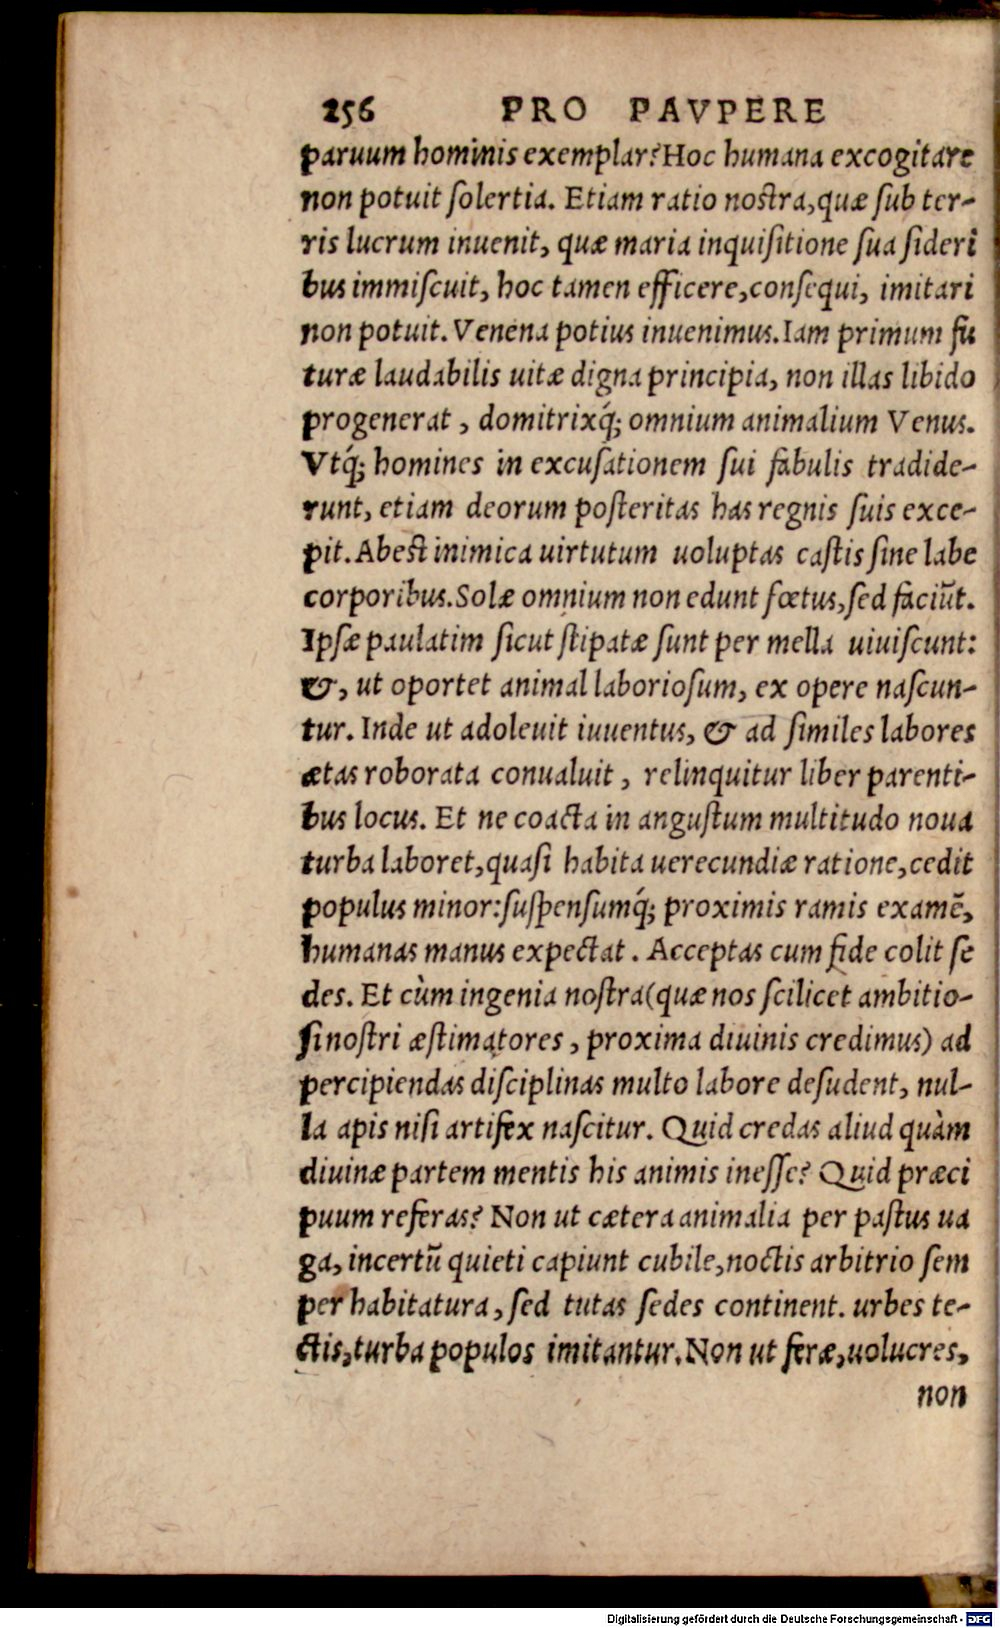 256 PRO PAVPERE
paruum hominis exemplar? Hoc humana excogitare
non potuit ſolertia. Etiam ratio noſtra, quæ ſub ter-
ris lucrum inuenit, quæ maria inquiſitione ſua ſideri
bus immiſcuit, hoc tamen efficere, conſequi, imitari
non potuit. Venena potius inuenimus. Iam primum fu
turæ laudabilis uitæ digna principia, non illas libido
progenerat, domitrixq́; omnium animalium Venus.
Vtq́; homines in excuſationem ſui fabulis tradide-
runt, etiam deorum poſteritas has regnis ſuis exce-
pit. Abeſt inimica uirtutum uoluptas caſtis ſine labe
corporibus. Solæ omnium non edunt fœtus, ſed faciūt.
Ipſæ paulatim ſicut ſtipatæ ſunt per mella uiuiſcunt:
&, ut oportet animal laborioſum, ex opere naſcun-
tur. Inde ut adoleuit iuuentus, & ad ſimiles labores
ætas roborata conualuit, relinquitur liber parenti-
bus locus. Et ne coacta in anguſtum multitudo noua
turba laboret, quaſi habita uerecundiæ ratione, cedit
populus minor: ſuſpenſumq́; proximis ramis examē,
humanas manus expectat. Acceptas cum fide colit ſe
des. Et cùm ingenia noſtra (quæ nos ſcilicet ambitio-
ſi noſtri æſtimatores, proxima diuinis credimus) ad
percipiendas diſciplinas multo labore deſudent, nul-
la apis niſi artifex naſcitur. Quid credas aliud quàm
diuinæ partem mentis his animis ineſſe? Quid præci
puum referas? Non ut cætera animalia per paſtus ua
ga, incertū quieti capiunt cubile, noctis arbitrio ſem
per habitatura, ſed tutas ſedes continent. urbes te-
ctis, turba populos imitantur. Non ut feræ, uolucres,
non
Digitalisierung gefördert durch die Deutsche Forschungsgemeinschaft - DFG